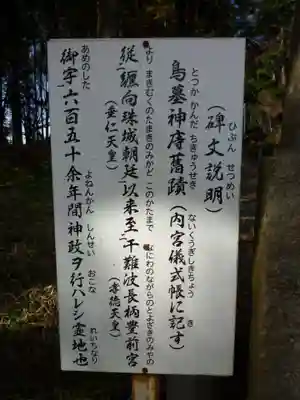 （碑文説明）
ひぶん　せつめい
鳥墓神庤舊蹟（内宮儀式帳に記す）
とつか　かんだ　ちきゅうせき　ないくうぎしきちょう　き
従纏向珠城朝廷以来至于難波長柄豊前宮
より　まきむくのたまきのみかど　このかたまで　なにわのながらのとよざきのみやの
（垂仁天皇）　（孝徳天皇）
御宇六百五十余年間神政ヲ行ハレシ霊地也
あめのした　よねんかん　しんせい　おこな　れいちなり